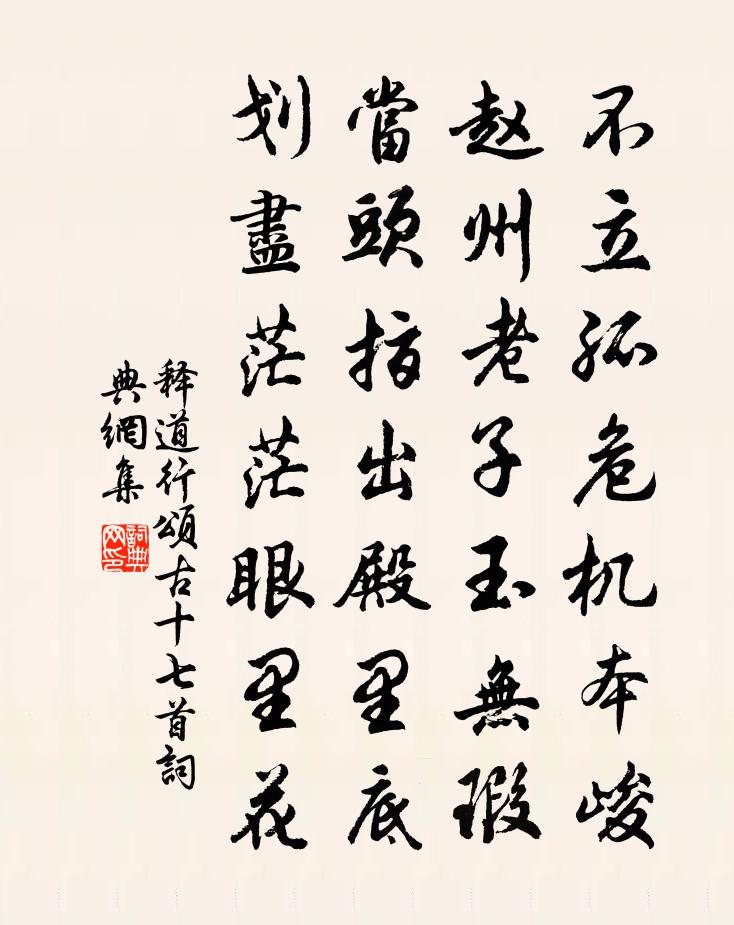 不立孤危机本峻
赵州老子玉無瑕
當頭指出殿里底
划盡茫茫眼里花
释道行頌古十七首詞
典網集
詞典
网印